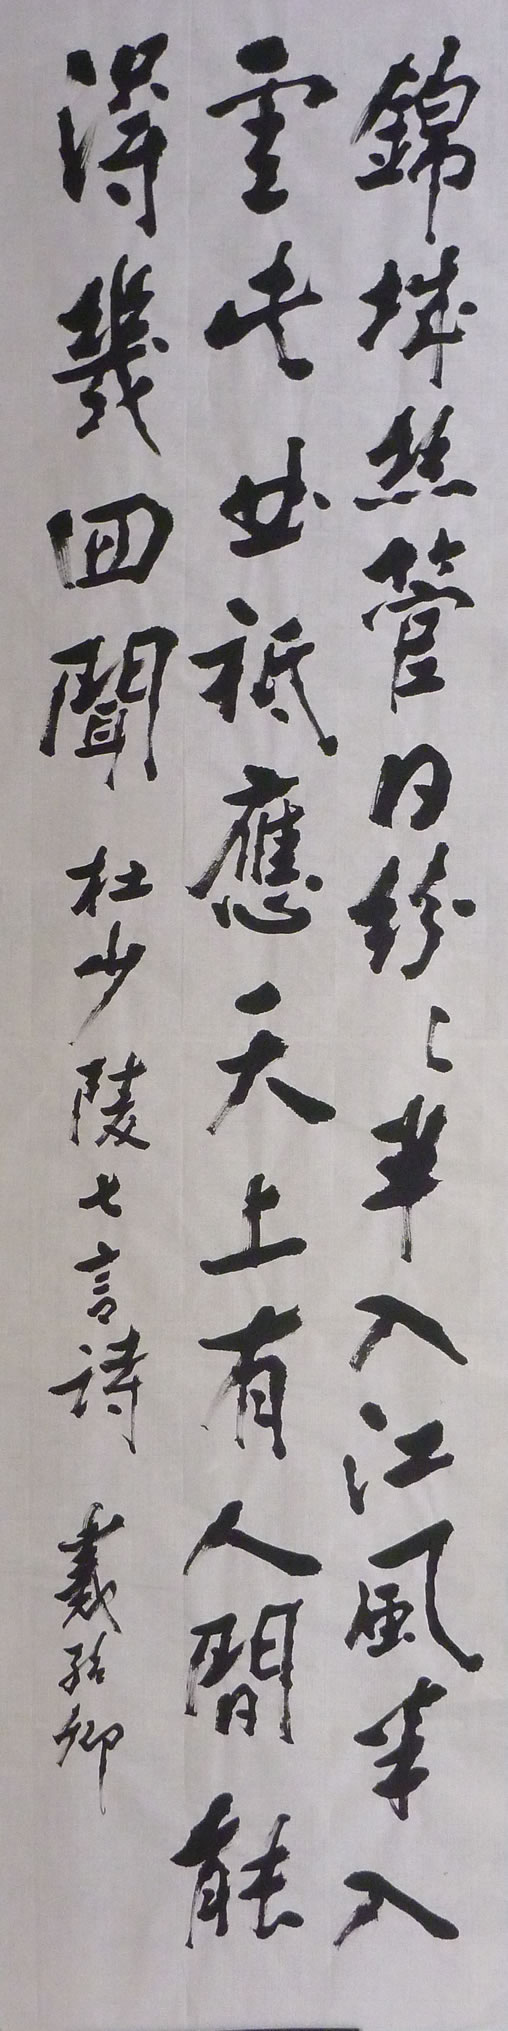 錦城絲管日紛〻半入江風半入
雲此曲祗應天上有人間能
得幾回聞 杜少陵七言詩 戴